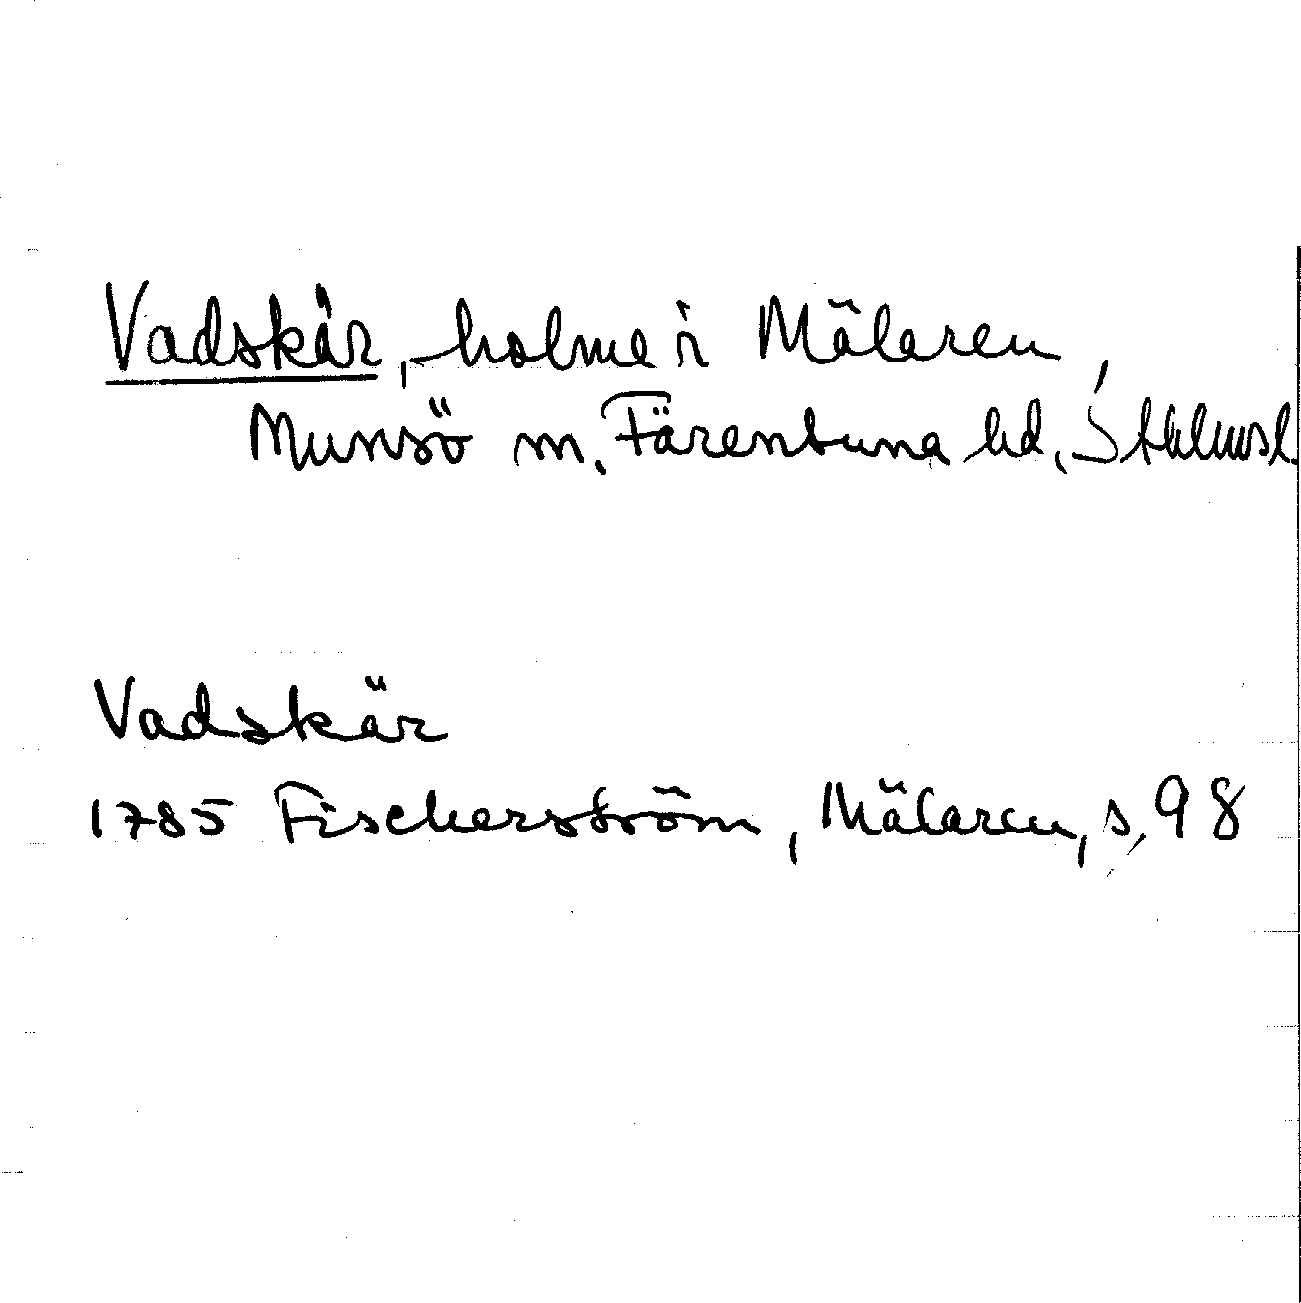 Vadskär, holme i Mälaren,
Munsö sn, Färentuna hd, Sthlmsl.
Vadskär
1785 Fischerström, Mälaren, s. 98